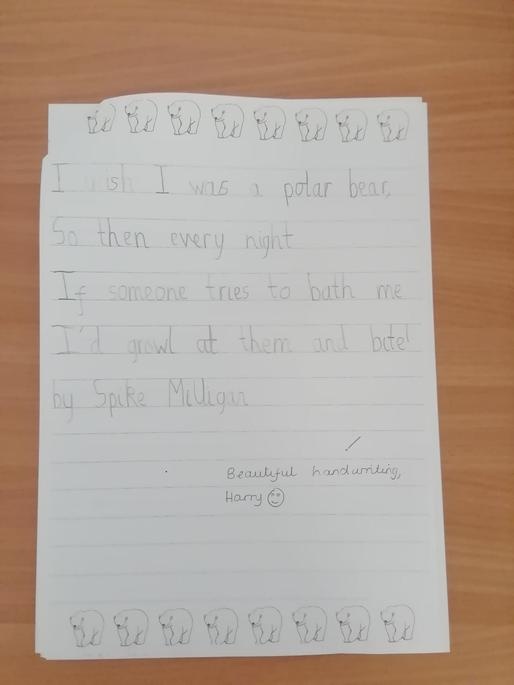 I wish I was a polar bear,
So then every night
If someone tries to bath me
I'd growl at them and bite!
by Spike Milligan
Beautiful handwriting,
Harry